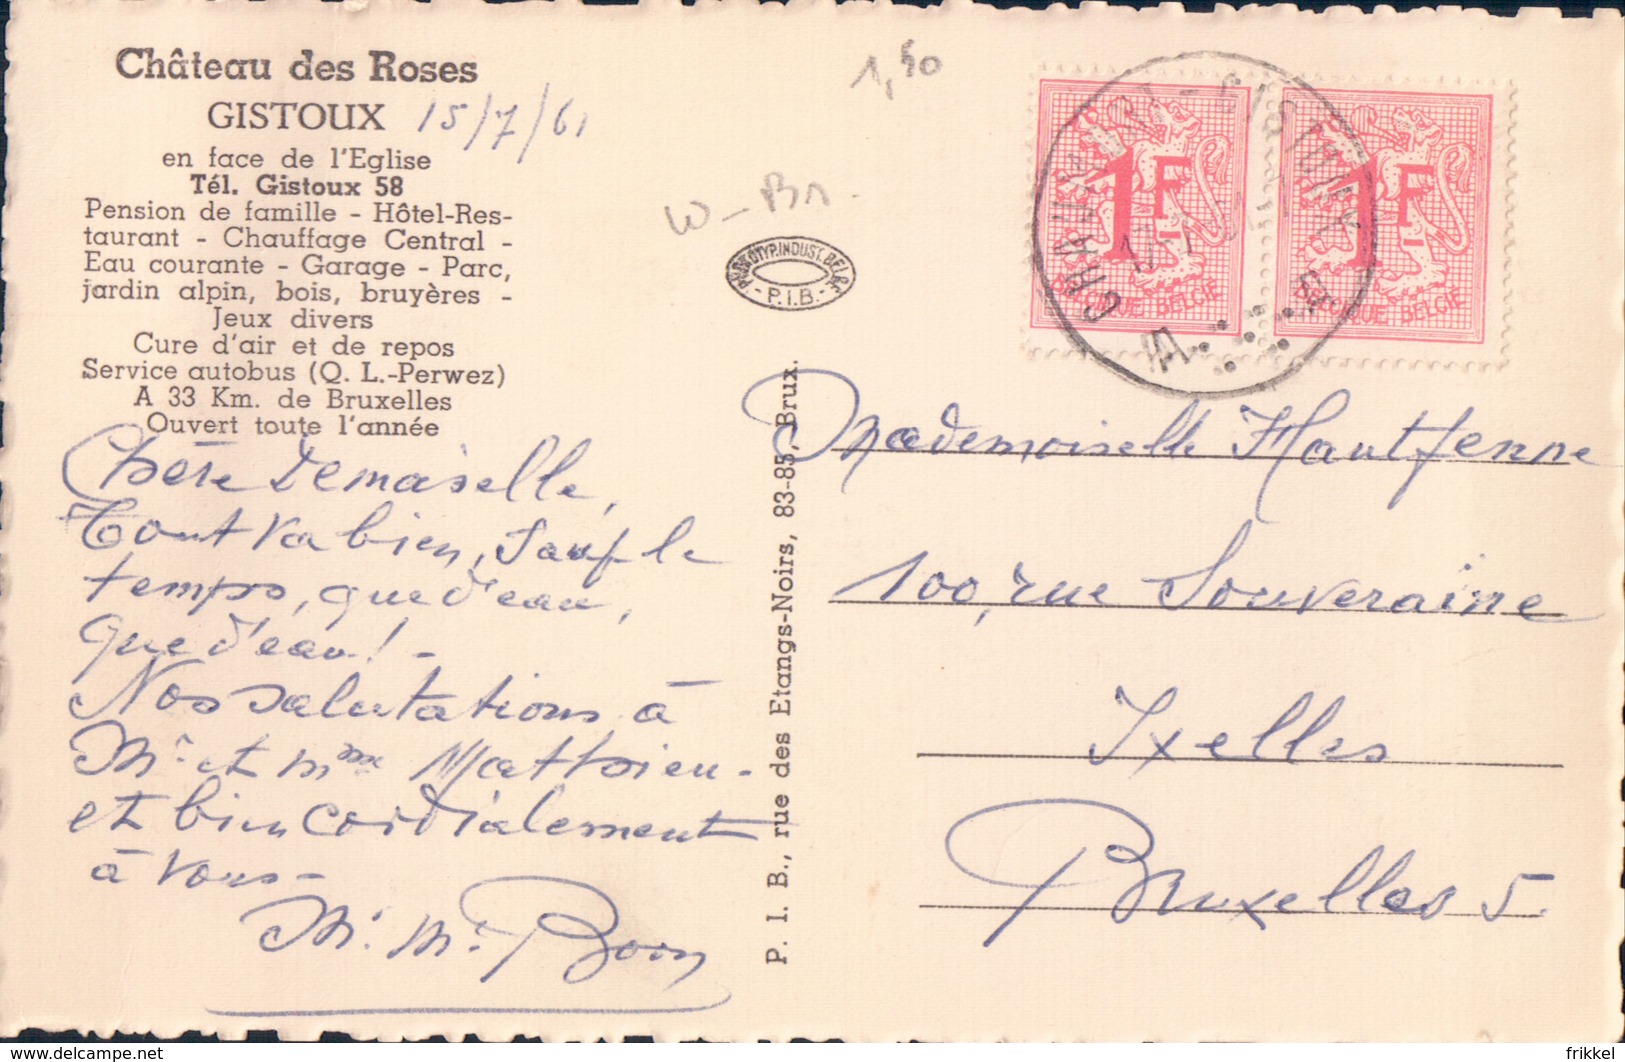 Château des Roses
GISTOUX 15/7/61
en face de l'Eglise
Tél. Gistoux 58
Pension de famille - Hôtel-Res-
taurant - Chauffage Central -
Eau courante - Garage - Parc,
jardin alpin, bois, bruyères -
Jeux divers
Cure d'air et de repos
Service autobus (Q. L.-Perwez)
A 33 Km. de Bruxelles
Ouvert toute l'année
Chère Demoiselle,
Tout va bien, sauf le
temps, que d'eau,
que d'eau! -
Nos salutations à
Mr et Mme Matthieu -
et bien cordialement
à vous -
M. Mr Boon
1,50
W - Bn -
INDUST. BELGE
- P.I.B. -
P. I. B., rue des Etangs-Noirs, 83-85, Brux.
1F
BELGIQUE BELGIE
1F
BELGIQUE BELGIE
CHAUMONT - GISTOUX
A
Mademoiselle Hautfenne
100, rue Souveraine
Ixelles
Bruxelles 5.
frikkel